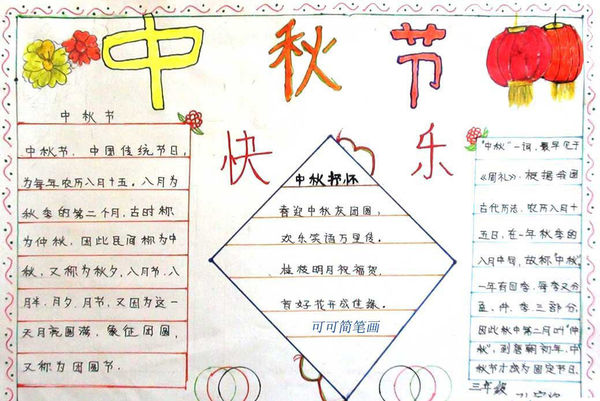 中秋节
快乐
中秋节
中秋节，中国传统节日，
为每年农历八月十五。八月为
秋季的第二个月，古时称
为仲秋，因此民间称为中
秋，又称为秋夕，八月节，八
月半，月夕，月节，又因为这一
天月亮圆满，象征团圆，
又称为团圆节。
中秋抒怀
喜迎中秋庆团圆，
欢乐笑语万里传。
桂枝明月祝福贺，
育好花开成佳缘。
可可简笔画
"中秋"一词，最早见于
《周礼》，根据我国
古代历法，农历八月十
五日，在一年秋季的
八月中旬，故称"中秋"。
一年有四季，每季又分
孟，仲，季三部分，
因此秋中第二月叫"仲
秋"，到唐朝初年，中
秋节才成为固定节日。
三年级